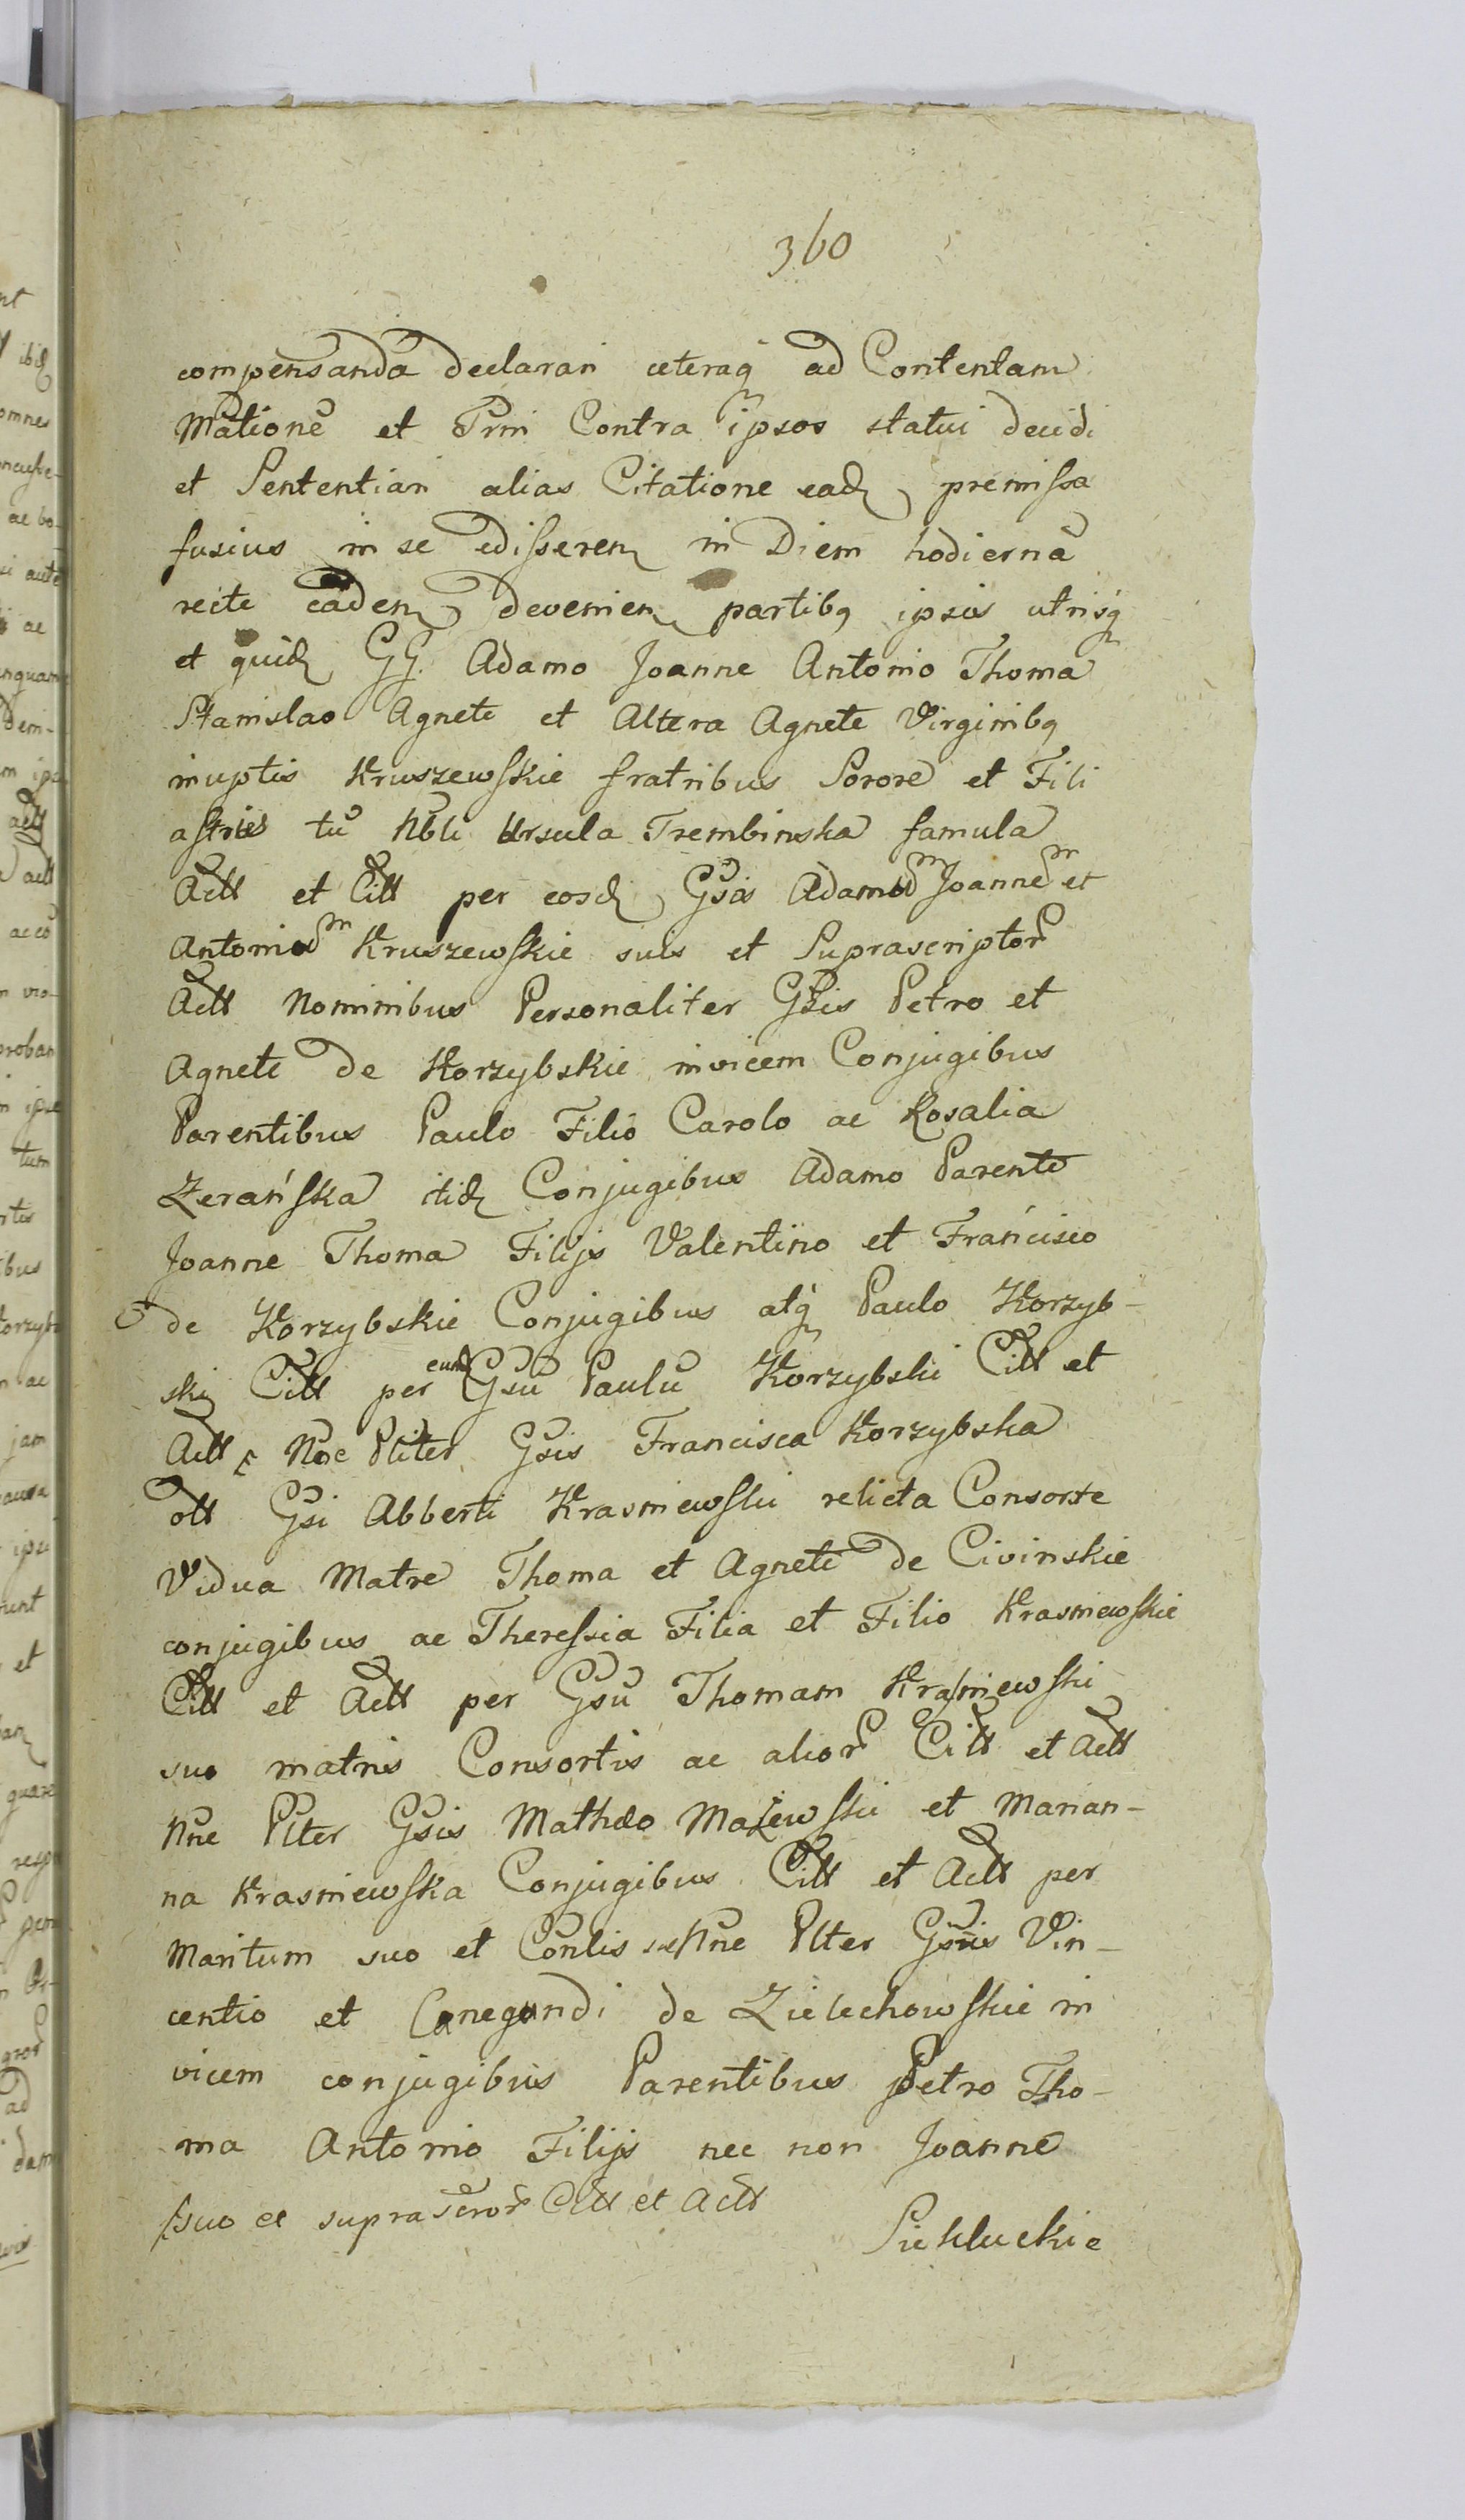 360
compensanda declarari ceteraq ad Contentam
Mationē et Trni Contra ipsos statui decidi
et Sententiari alias Citatione ead premissa
fusius in se edisseren in Diem hodiernā
recte eaden devenien partibq ipsis utrisq
et quid GG. Adamo Joanne Antonio Thoma
Stanislao Agnete et Altera Agnete Virginibq
inuptis Kruszewskie fratribus Sorore et Fili
astris tū Nbli Ursula Trembinska famula
Actt et Citt per eosd Gsis Adamum Joannem et
Antonium Kruszewskie suis et Suprascriptor
Actt Nominibus Personaliter Gsis Petro et
Agnete de Korzybskie invicem Conjugibus
Parentibus Paulo Filio Carolo ac Rosalia
Zerańska itid Conjugibus Adamo Parente
Joanne Thoma Filijs Valentino et Francisco
de Korzybskie Conjugibus atq Paulo Korzyb-
ski Citt per eund Gsū Paulū Korzybski Citt et
Actt Noe Pliter Gsis Francisca Korzybska
olt Gsi Alberti Krasniewski relicta Consorte
Vidua Matre Thoma et Agnete de Civinskie
conjugibus ac Theressia Filia et Filio Krasniewskie
Citt et Actt per Gsū Thomam Krasniewski
suo matris Consortis ac alior Citt et Actt
Nne Plter Gsis Mathæo Mażewski et Marian-
na Krasniewska Conjugibus Citt et Actt per
Maritum suo et Contis Nne Plter Gsis Vin-
centio et Canegundi de Zielechowskie in
vicem conjugibus Parentibus Petro Tho-
ma Antonio Filijs nec non Joanne
suo et supra scror Citt et Actt
Siekluckie